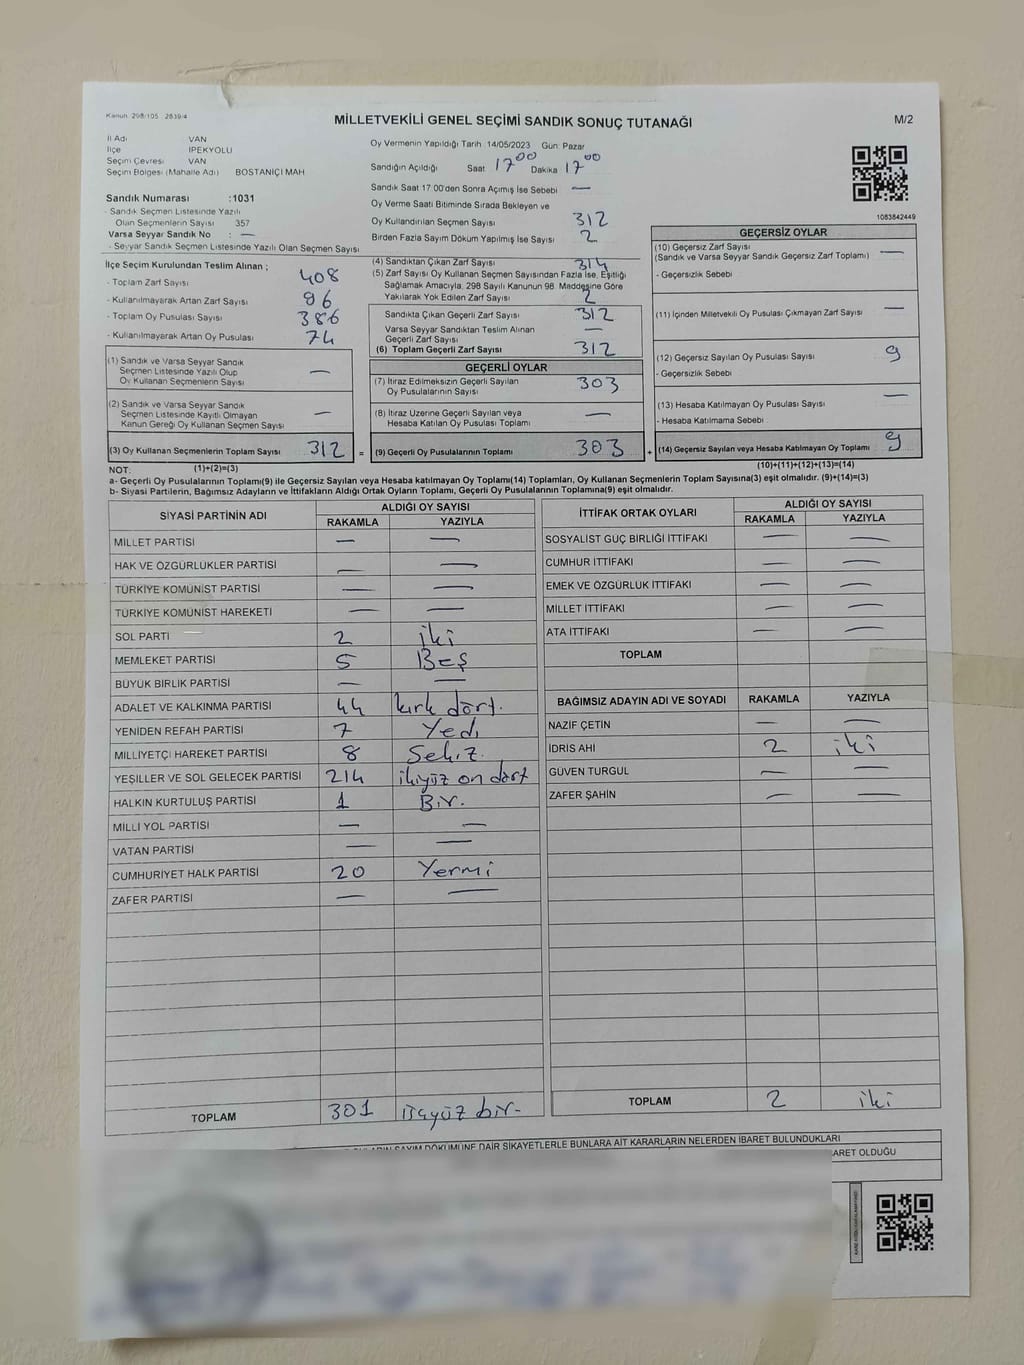 Kanun 298/105 2839/4
MİLLETVEKİLİ GENEL SEÇİMİ SANDIK SONUÇ TUTANAĞI
M/2
İl Adı VAN
İlçe İPEKYOLU
Seçim Çevresi VAN
Seçim Bölgesi (Mahalle Adı) BOSTANİÇİ MAH
Sandık Numarası :1031
- Sandık Seçmen Listesinde Yazılı
Olan Seçmenlerin Sayısı 357
Varsa Seyyar Sandık No : —
- Seyyar Sandık Seçmen Listesinde Yazılı Olan Seçmen Sayısı
Oy Vermenin Yapıldığı Tarih 14/05/2023 Gün: Pazar
Sandığın Açıldığı Saat 17 00 Dakika 17 00
Sandık Saat 17 00'den Sonra Açımış İse Sebebi —
Oy Verme Saati Bitiminde Sırada Bekleyen ve
Oy Kullandırılan Seçmen Sayısı 312
Birden Fazla Sayım Döküm Yapılmış İse Sayısı 2
1083842449
İlçe Seçim Kurulundan Teslim Alınan ;
- Toplam Zarf Sayısı 408
- Kullanılmayarak Artan Zarf Sayısı 96
- Toplam Oy Pusulası Sayısı 386
- Kullanılmayarak Artan Oy Pusulası 74
(1) Sandık ve Varsa Seyyar Sandık
Seçmen Listesinde Yazılı Olup
Oy Kullanan Seçmenlerin Sayısı —
(2) Sandık ve Varsa Seyyar Sandık
Seçmen Listesinde Kayıtlı Olmayan
Kanun Gereği Oy Kullanan Seçmen Sayısı —
(3) Oy Kullanan Seçmenlerin Toplam Sayısı 312 =
(1)+(2)=(3)
(4) Sandıktan Çıkan Zarf Sayısı 314
(5) Zarf Sayısı Oy Kullanan Seçmen Sayısından Fazla İse, Eşitliği
Sağlamak Amacıyla, 298 Sayılı Kanunun 98. Maddesine Göre
Yakılarak Yok Edilen Zarf Sayısı 2
Sandıkta Çıkan Geçerli Zarf Sayısı 312
Varsa Seyyar Sandıktan Teslim Alınan
Geçerli Zarf Sayısı —
(6) Toplam Geçerli Zarf Sayısı 312
GEÇERLİ OYLAR
(7) İtiraz Edilmeksizin Geçerli Sayılan
Oy Pusulalarının Sayısı 303
(8) İtiraz Üzerine Geçerli Sayılan veya
Hesaba Katılan Oy Pusulası Toplamı —
(9) Geçerli Oy Pusulalarının Toplamı 303 +
GEÇERSİZ OYLAR
(10) Geçersiz Zarf Sayısı
(Sandık ve Varsa Seyyar Sandık Geçersiz Zarf Toplamı) —
- Geçersizlik Sebebi
(11) İçinden Milletvekili Oy Pusulası Çıkmayan Zarf Sayısı —
(12) Geçersiz Sayılan Oy Pusulası Sayısı 9
- Geçersizlik Sebebi
(13) Hesaba Katılmayan Oy Pusulası Sayısı —
- Hesaba Katılmama Sebebi
(14) Geçersiz Sayılan veya Hesaba Katılmayan Oy Toplamı 9
(10)+(11)+(12)+(13)=(14)
NOT:
a- Geçerli Oy Pusulalarının Toplamı(9) ile Geçersiz Sayılan veya Hesaba Katılmayan Oy Toplamı(14) Toplamları, Oy Kullanan Seçmenlerin Toplam Sayısına(3) eşit olmalıdır. (9)+(14)=(3)
b- Siyasi Partilerin, Bağımsız Adayların ve İttifakların Aldığı Ortak Oyların Toplamı, Geçerli Oy Pusulalarının Toplamına(9) eşit olmalıdır.
SİYASİ PARTİNİN ADI ALDIĞI OY SAYISI
RAKAMLA YAZIYLA
MİLLET PARTİSİ — —
HAK VE ÖZGÜRLÜKLER PARTİSİ — —
TÜRKİYE KOMÜNİST PARTİSİ — —
TÜRKİYE KOMÜNİST HAREKETİ — —
SOL PARTİ 2 iki
MEMLEKET PARTİSİ 5 Beş
BÜYÜK BİRLİK PARTİSİ — —
ADALET VE KALKINMA PARTİSİ 44 kırk dört.
YENİDEN REFAH PARTİSİ 7 Yedi
MİLLİYETÇİ HAREKET PARTİSİ 8 Sekiz.
YEŞİLLER VE SOL GELECEK PARTİSİ 214 ikiyüz on dört
HALKIN KURTULUŞ PARTİSİ 1 Bir.
MİLLİ YOL PARTİSİ — —
VATAN PARTİSİ — —
CUMHURİYET HALK PARTİSİ 20 Yermi
ZAFER PARTİSİ — —
TOPLAM 301 üçyüz bir-
İTTİFAK ORTAK OYLARI ALDIĞI OY SAYISI
RAKAMLA YAZIYLA
SOSYALİST GÜÇ BİRLİĞİ İTTİFAKI — —
CUMHUR İTTİFAKI — —
EMEK VE ÖZGÜRLÜK İTTİFAKI — —
MİLLET İTTİFAKI — —
ATA İTTİFAKI — —
TOPLAM
BAĞIMSIZ ADAYIN ADI VE SOYADI RAKAMLA YAZIYLA
NAZİF ÇETİN — —
İDRİS AHİ 2 iki
GÜVEN TURGUL — —
ZAFER ŞAHİN — —
TOPLAM 2 iki
SAYIM DÖKÜMÜNE DAİR ŞİKAYETLERLE BUNLARA AİT KARARLARIN NELERDEN İBARET BULUNDUKLARI
OLDUĞU